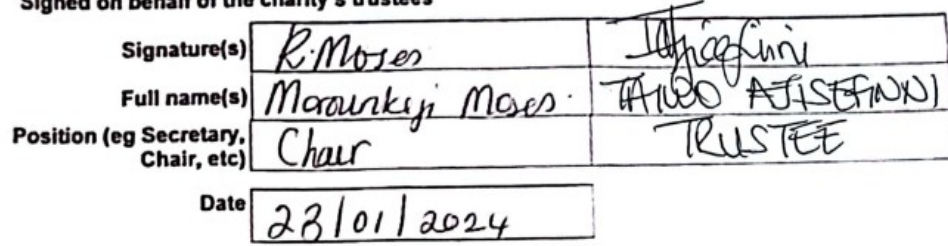 Signed on behalf of the charity's trustees
Signature(s) R. Moses
Full name(s) Morounkeji Moses. TAIWO AJISEFINNI
Position (eg Secretary, Chair, etc) Chair TRUSTEE
Date 23/01/2024